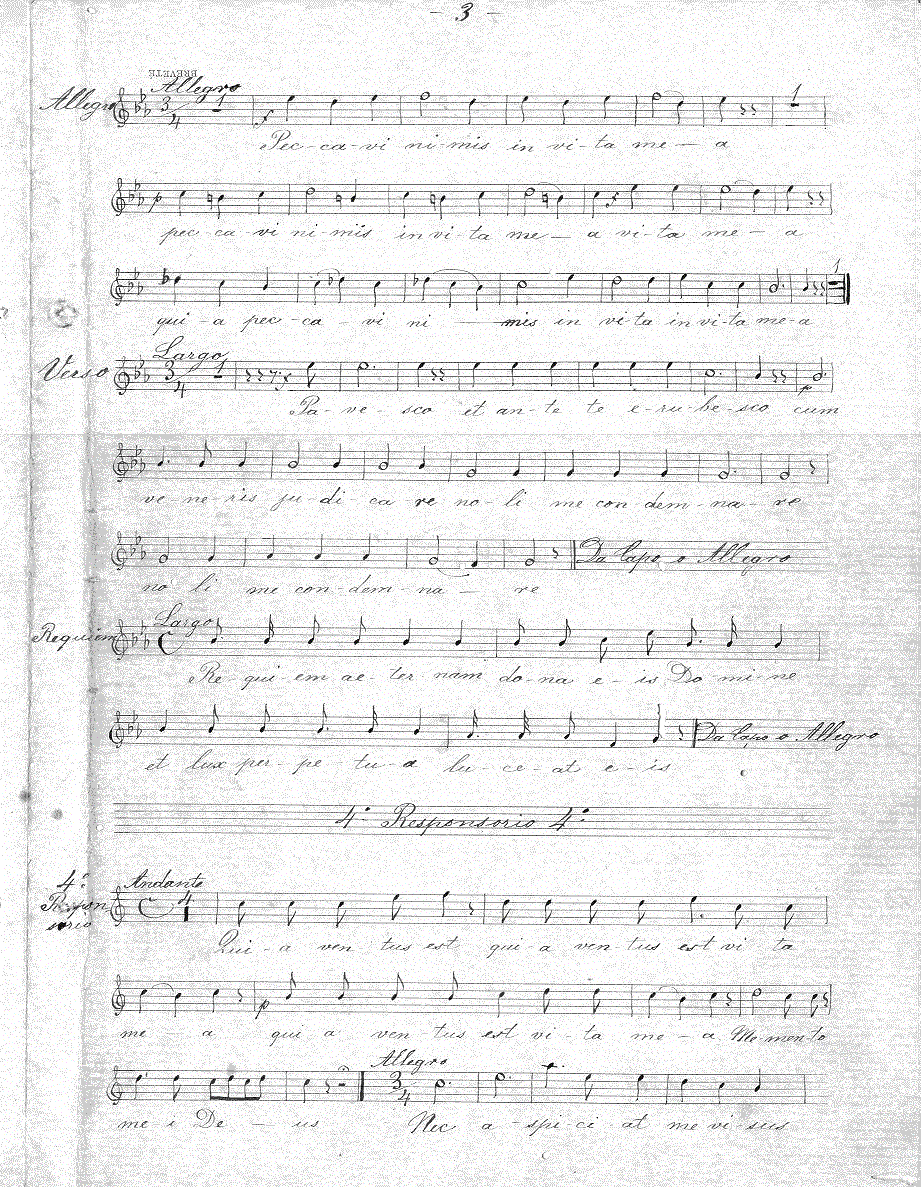 - 3 -
BREVETÉ
Allegro Allegro
3/4 1 f 1
Pec-ca-vi ni-mis in vi-ta me-a
p
pec-ca-vi ni-mis in vi-ta me-a vi-ta me-a
1
qui-a pec-ca-vi ni-mis in vi-ta in vi-ta me-a
Verso Largo
3/4 1 p
Pa-ve-sco et an-te te e-ru-be-sco cum
ve-ne-ris ju-di-ca re no-li me con-dem-na-re
Da Capo o Allegro
no li me con-dem-na-re
Requiem Largo
Re-qui-em ae-ter nam do-na e-is Do mi-ne
Da Capo o Allegro
et lux per-pe-tu-a lu-ce-at e-is
4º Responsorio 4º
4º Respon sorio Andante
4
Qui-a ven tus est qui-a ven-tus est vi ta
p
me-a qui a ven-tus est vi-ta me-a Me-men-to
Allegro
3/4
me i De-us Nec a-spi-ci-at me vi-sus